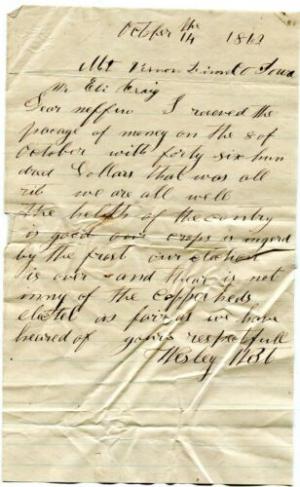 October the
14 1863
Mt Vernon Linn Co Iowa
Mr Eli Craig
Dear neffew I receved the
pacage of money on the 8 of
October with forty six hun
dred Dollars that was all
rib we are all well
the helth of the contry
is good our crops is ingerd
by the frost our election
is over and thear is not
mny of the copper heds
elected as fair as we have
heared of yours respectfull
Wesley